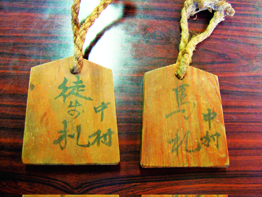 徒歩札
中村
馬札
中村